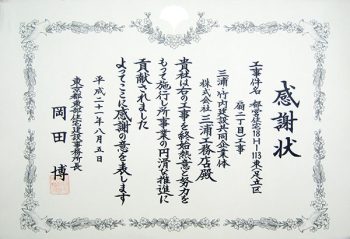 感謝状
工事件名 都営住宅18H-113東(足立区
扇二丁目)工事
三浦・竹内建設共同企業体
株式会社三浦工務店殿
貴社は右の工事を終始熱意と努力を
もって施行し所事業の円滑な推進に
貢献されました
よってここに感謝の意を表します
平成二十一年八月五日
東京都東部住宅建設事務所長
岡田 博